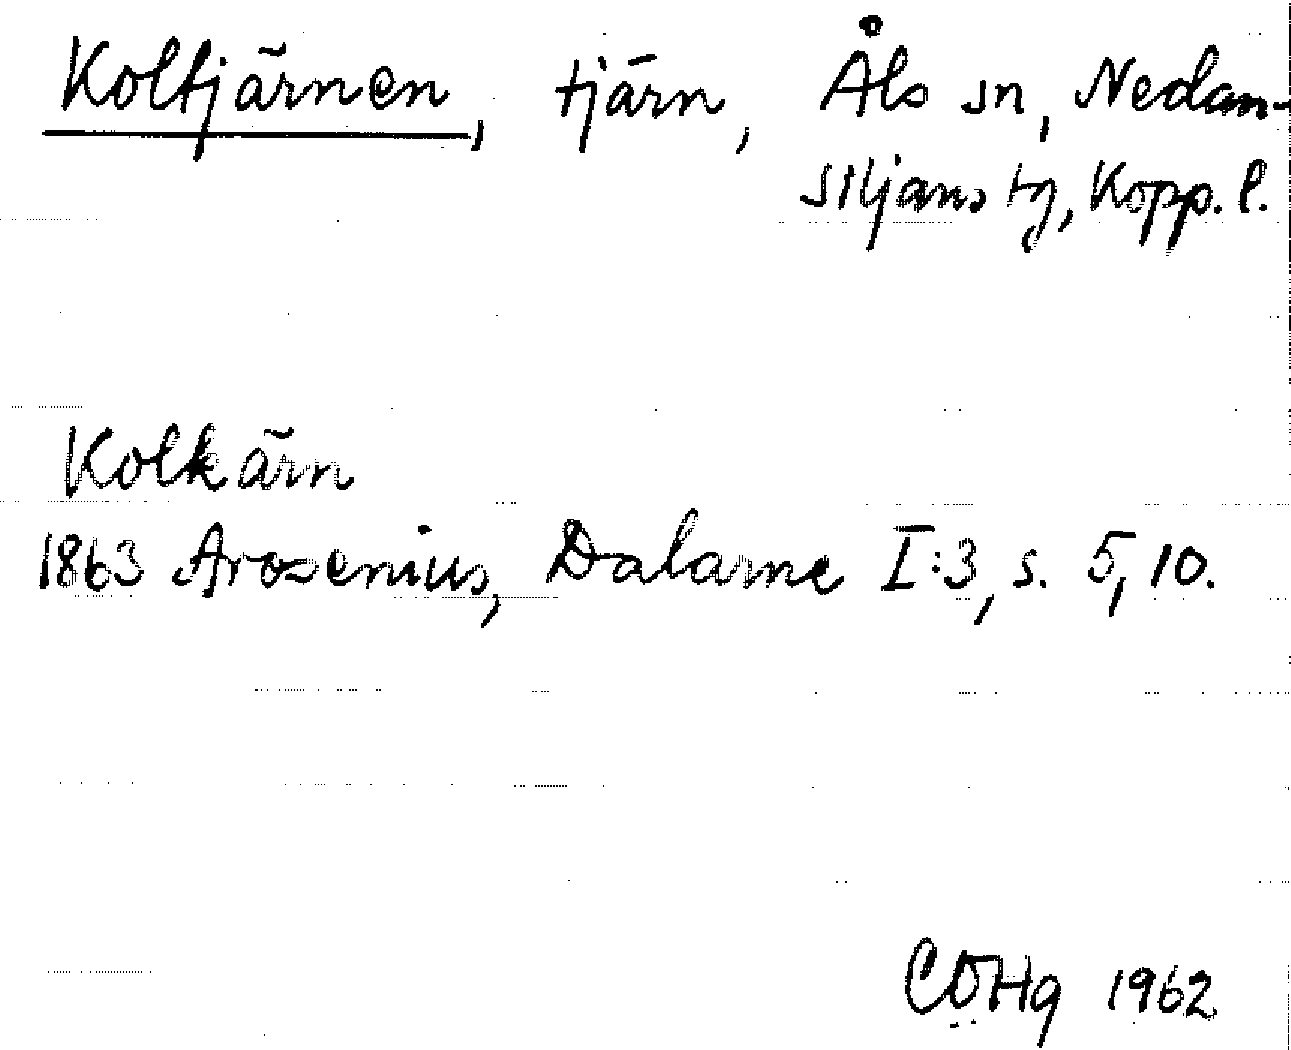 Koltjärnen, tjärn, Åls sn, Nedan-
siljans tg, Kopp. l.
Kolkärn
1863 Arosenius, Dalarne I:3, s. 5, 10.
CÖHg 1962